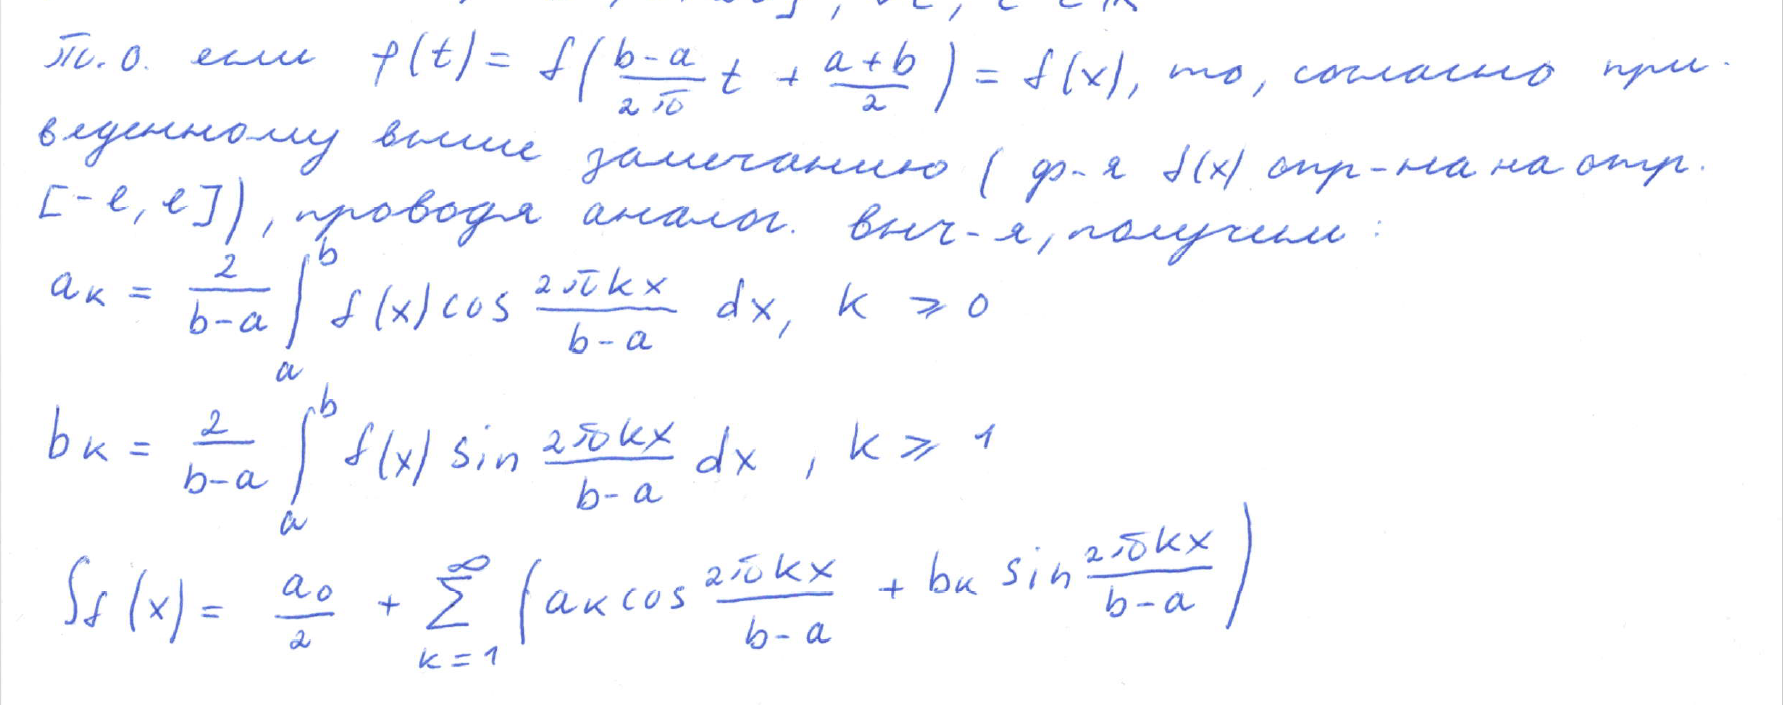 т.о. если φ(t) = f((b-a)/(2π) t + (a+b)/2) = f(x), то, согласно при-
веденному выше замечанию (ф-я f(x) опр-на на отр.
[-l, l]), проводя аналог. выч-я, получим:
aₖ = 2/(b-a) ∫ₐᵇ f(x) cos (2πkx)/(b-a) dx, k ⩾ 0
bₖ = 2/(b-a) ∫ₐᵇ f(x) sin (2πkx)/(b-a) dx, k ⩾ 1
S_f(x) = a₀/2 + ∑_{k=1}^{∞} (aₖ cos (2πkx)/(b-a) + bₖ sin (2πkx)/(b-a))